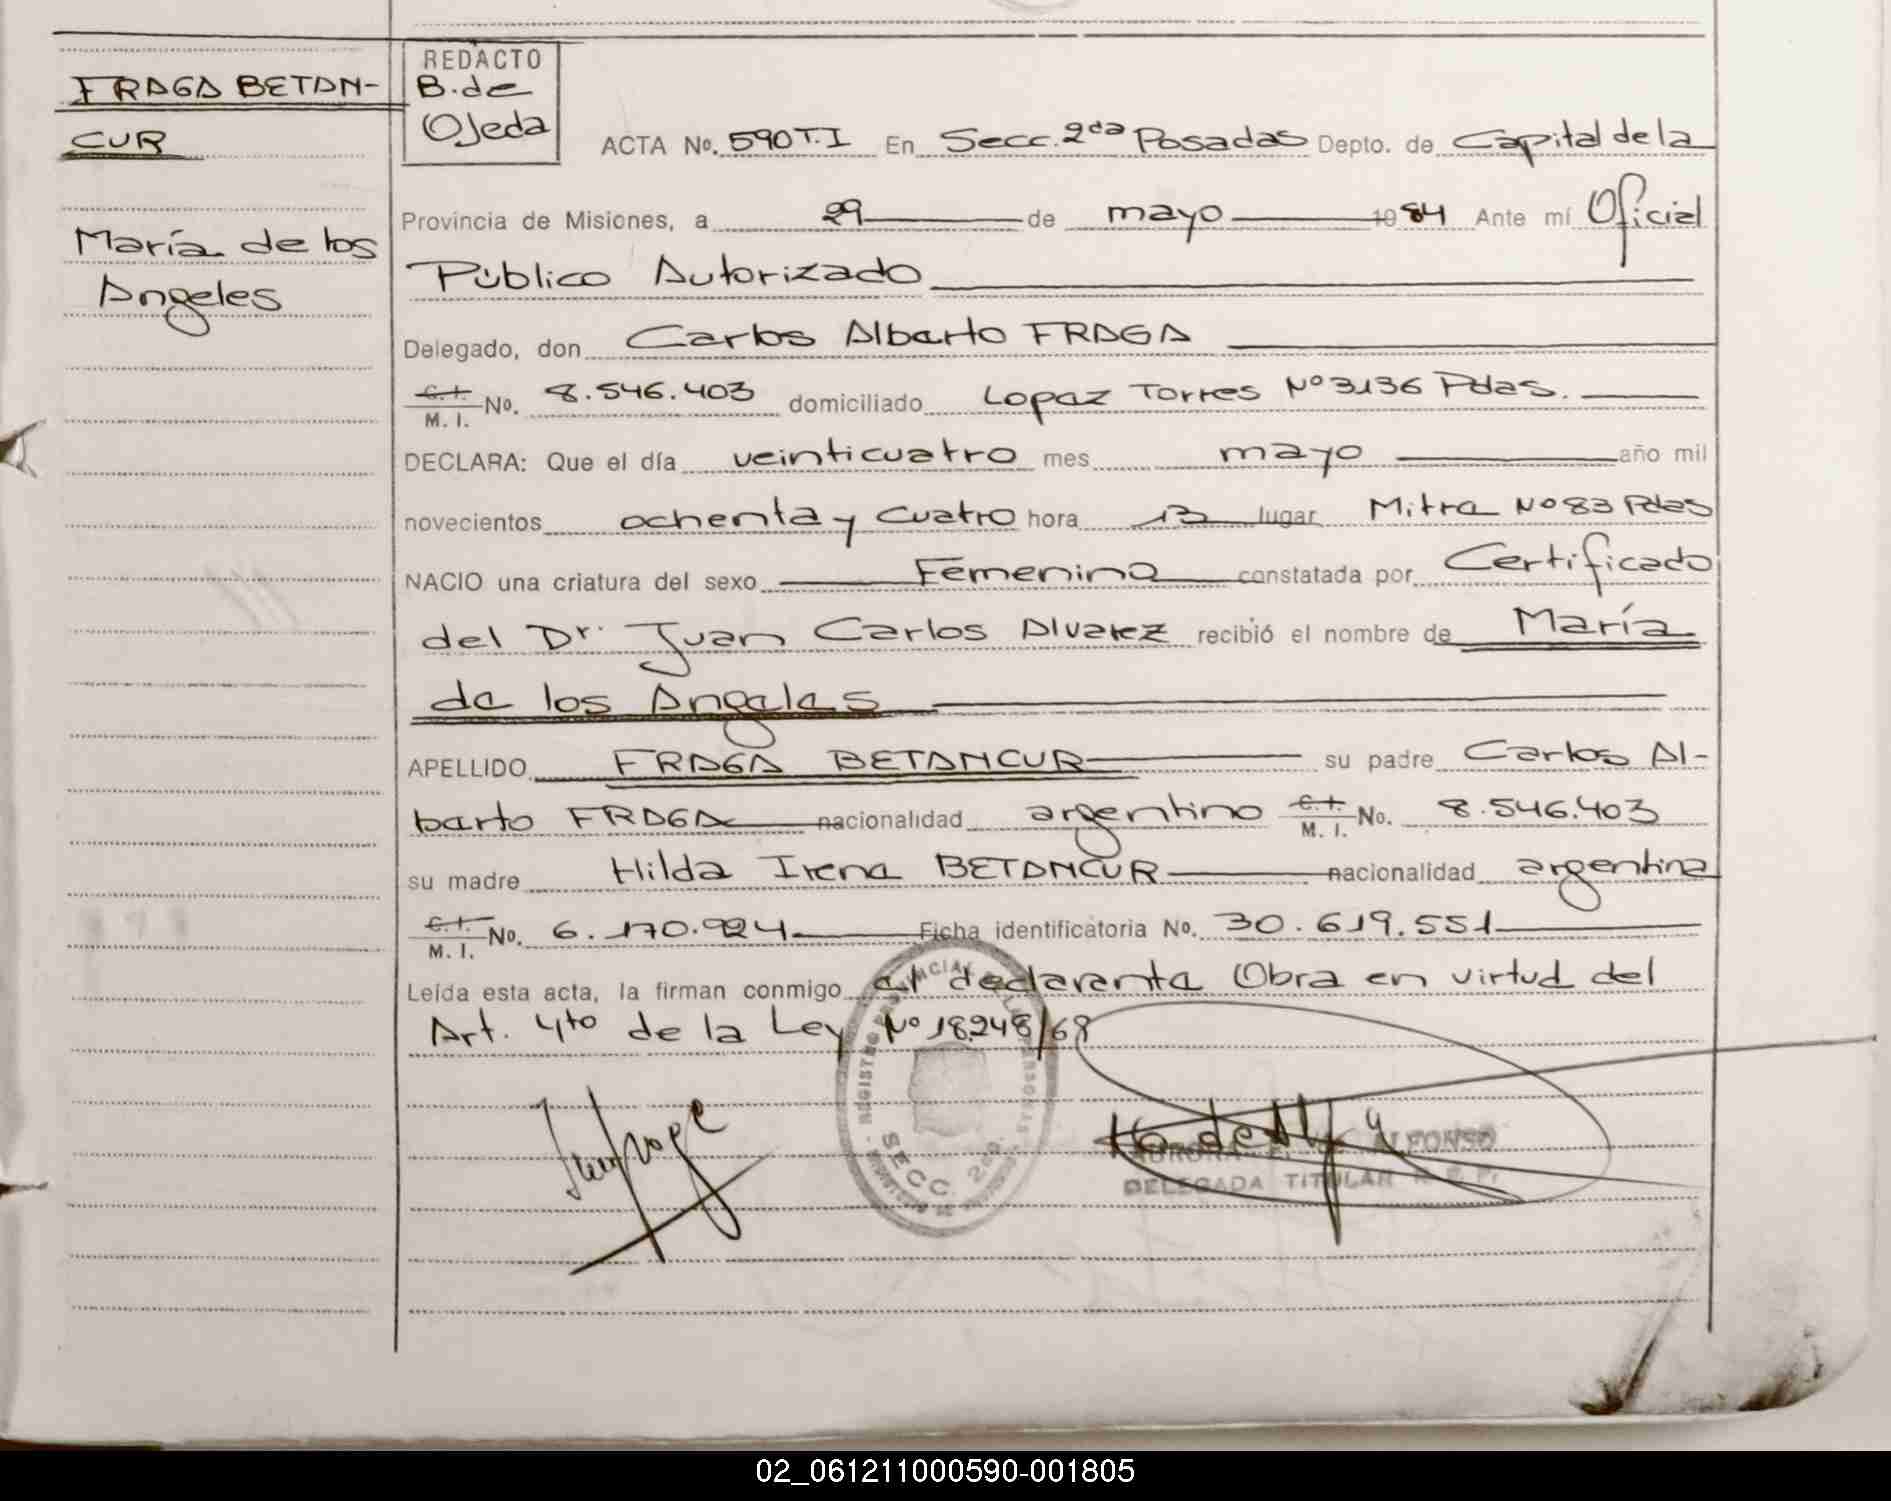 FRAGA BETAN-
CUR
María de los
Angeles
REDACTO
B. de
Ojeda
ACTA No. 590 T.I En Secc. 2da Posadas Depto. de Capital de la
Provincia de Misiones, a 29 de mayo 1984 Ante mí Oficial
Público Autorizado
Delegado, don Carlos Alberto FRAGA
C.I. M. I. No. 8.546.403 domiciliado Lopez Torres Nº 3136 Pdas.
DECLARA: Que el día veinticuatro mes mayo año mil
novecientos ochenta y cuatro hora 13 lugar Mitre Nº 83 Pdas
NACIO una criatura del sexo Femenino constatada por Certificado
del Dr. Juan Carlos Alvarez recibió el nombre de María
de los Angeles
APELLIDO FRAGA BETANCUR su padre Carlos Al-
berto FRAGA nacionalidad argentino C.I. M. I. No. 8.546.403
su madre Hilda Irene BETANCUR nacionalidad argentina
C.I. M. I. No. 6.170.924 Ficha identificatoria No. 30.619.551
Leída esta acta, la firman conmigo el declarante Obra en virtud del
Art. 4to de la Ley Nº 18.248/69
REGISTRO PROVINCIAL DE LAS PERSONAS
SECC. 2da.
ALFONSO
DELEGADA TITULAR R. P. P.
02_061211000590-001805